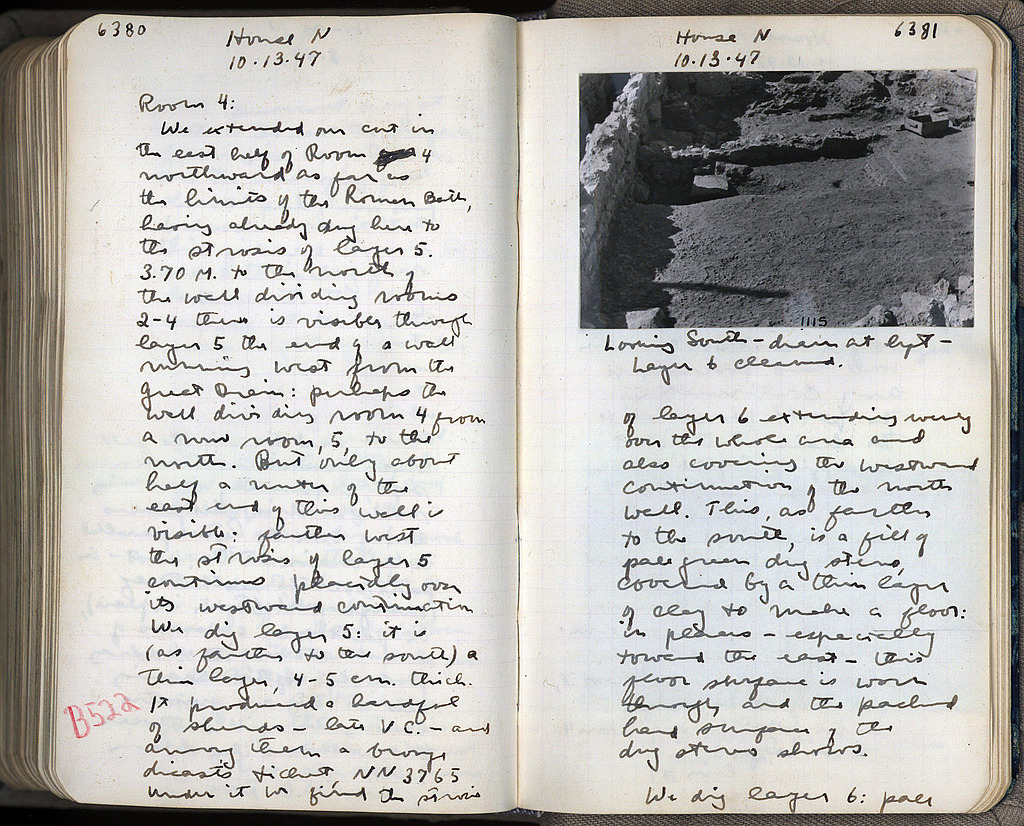 6380
House N
10.13.47
Room 4:
We extended our cut in
the east half of Room 4
northward as far as
the limits of the Roman Bath,
having already dug here to
the strosis of layer 5.
3.70 M. to the north of
the wall dividing rooms
2-4 there is visible through
layer 5 the end of a wall
running west from the
Great Drain: perhaps the
wall dividing room 4 from
a new room, 5, to the
north. But only about
half a meter of the
east end of this wall is
visible: farther west
the strosis of layer 5
continues placidly over
its westward continuation
We dig layer 5: it is
(as farther to the south) a
thin layer, 4-5 cm. thick.
It produced a handful
of sherds - late V C. - and
among them a bronze
dicast's ticket, NN 3765
B522
Under it we find the strosis
6381
House N
10.13.47
1115
Looking South - drain at left -
Layer 6 cleaned.
of layer 6 extending evenly
over the whole area and
also covering the westward
continuation of the north
wall. This, as farther
to the south, is a fill of
pale green dry stereo,
covered by a thin layer
of clay to make a floor:
in places - especially
toward the east - this
floor surface is worn
through and the packed
hard surface of the
dry stereo shows.
We dig layer 6: pale